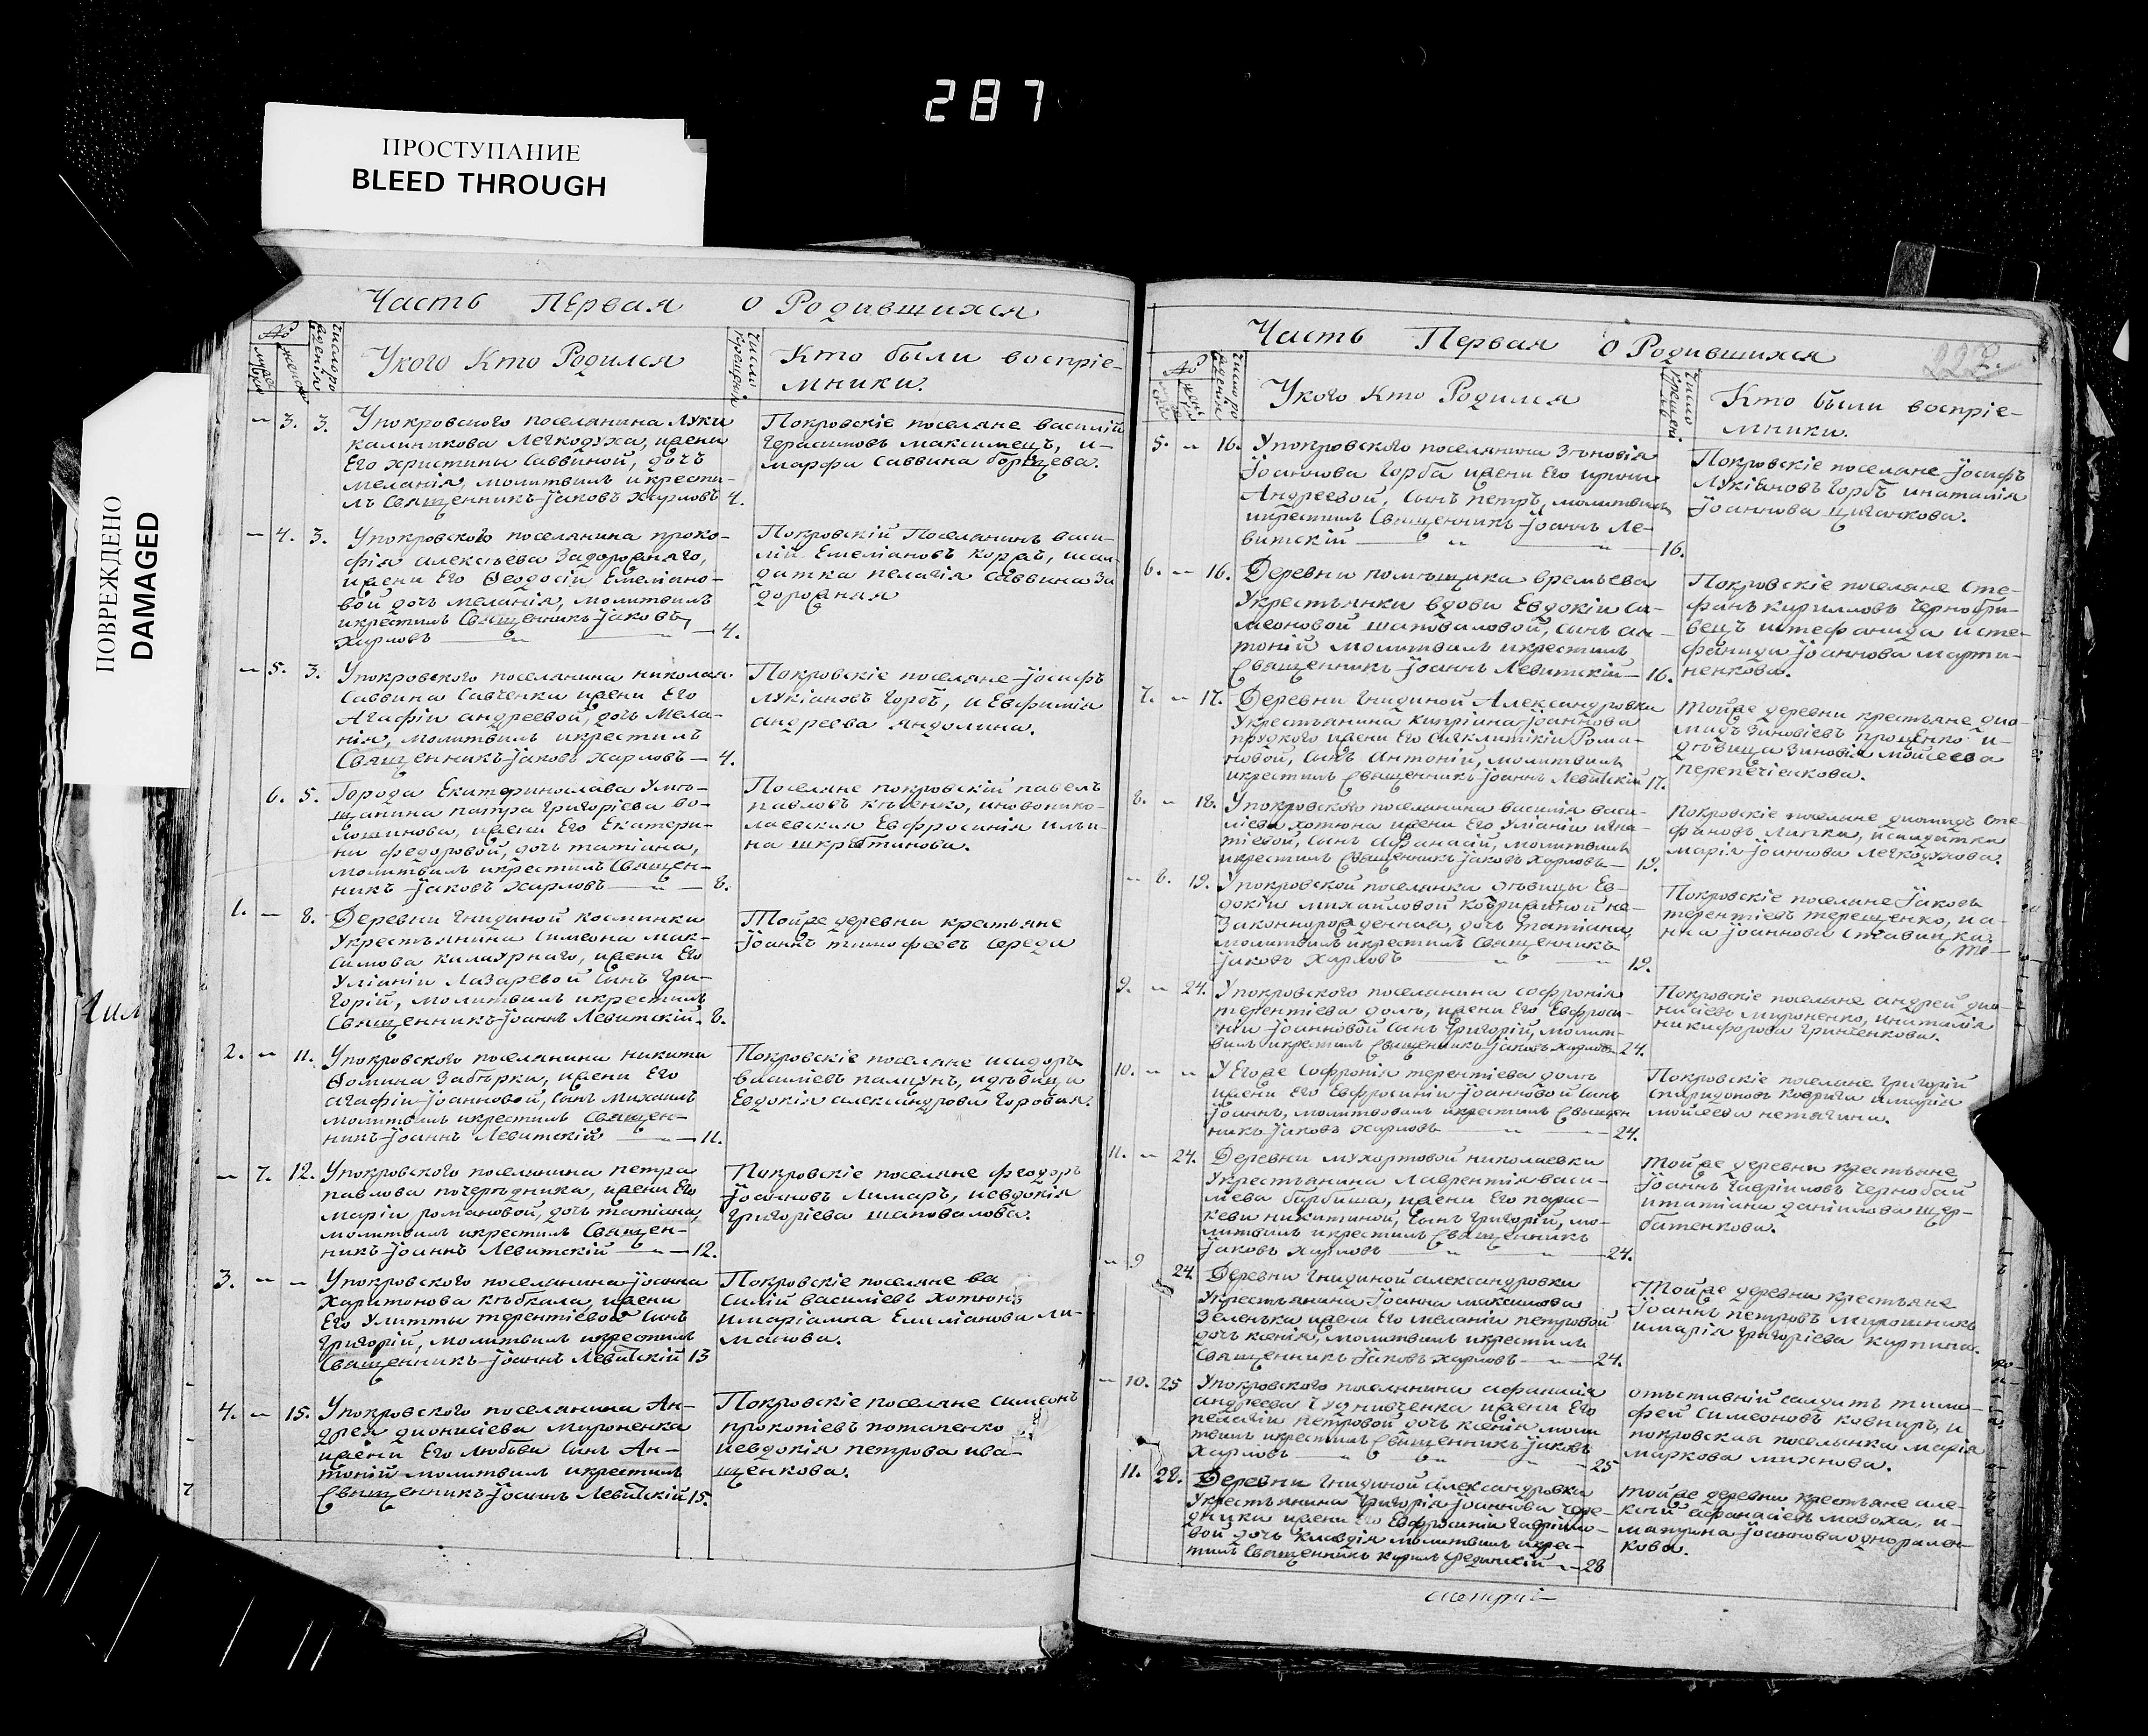 287
ПРОСТУПАНИЕ
BLEED THROUGH
ПОВРЕЖДЕНО
DAMAGED
Часть Первая О Родившихся
№
Укого Кто Родился
Кто были воспріе-
мники.
— 3. 3. Упокровского поселянина Луки
калиникова Легкодуха, жени
Его христины Саввиной, дочь
меланія, молитвилъ икрести-
лъ Священникъ Іаковъ Харловъ 4.
Покровскіе поселяне василій
Герасимовъ максимецъ, и
марфа саввина борщева.
— 4. 3. Упокровского поселянина проко-
фія алексѣева Задорожняго,
жени Его Ѳеодосіи Емеліано-
вой дочь меланія, молитвилъ
икрестилъ Священникъ Іаковъ
Харловъ — 4.
Покровскій Поселянинъ васи-
лій Емеліановъ коржъ, исал-
датка пелагія саввина За
дорожняя
— 5. 3. Упокровского поселянина николая
Саввина Савченка жени Его
Агафіи андреевой, дочь Мела-
нія, молитвилъ икрестилъ
Священникъ Іаковъ Харловъ — 4.
Покровскіе поселяне Іосифъ
Лукіановъ Горбъ, и Евфимія
андреева яндолина.
6. 5. Города Екатеринослава Умѣ-
щанина петра григоріева во-
лошинова, жени Его Екатери-
ни федоровой, дочь татіана,
молитвилъ икрестилъ Священ-
никъ Іаковъ Харловъ — 8.
Поселяне покровскій павелъ
павловъ кѣленко, иновонико-
лаевская Евфросинія ильи-
на
1. — 8. Деревни Гнидиной косминки
Укрестьянина Симеона Мак-
симова жени Его
Уліаніи Лазаревой сынъ Гри-
горій, молитвилъ икрестилъ
Священникъ Іоаннъ Левитскій. 8.
Тойже деревни крестьяне
Іоаннъ тимофеевъ середа
2. — 11. Упокровского поселянина никити
Ѳомина Забѣрки, жени Его
агафіи Іоанновой, сынъ Михаилъ
молитвилъ икрестилъ Священ-
никъ Іоаннъ Левитскій — 11.
Покровскіе поселяне исидоръ
василіевъ палгунъ, идѣвица
Евдокія александрова Горовая.
— 7. 12. Упокровского поселянина петра
павлова почережника, жени Его
маріи романовой, дочь татіана,
молитвилъ икрестилъ Священ-
никъ Іоаннъ Левитскій — 12.
Покровскіе поселяне феодоръ
Іоанновъ Лимарь, иевдокія
григоріева шаповалова.
3. — — Упокровского поселянина Іоанна
Харитонова кѣбкала, жени
Его Улитты терентіевой сынъ
Григорій, молитвилъ икрестилъ
Священникъ Іоаннъ Левитскій 13
Покровскіе поселяне ва
силій василіевъ Хотюнъ
имаріамна Емеліанова ли-
манова.
4. — 15. Упокровского поселянина Ан-
дрея діонисіева Мироненка
жени Его Любови сынъ Ан-
тоній молитвилъ икрестилъ
Священникъ Іоаннъ Левитскій 15.
Покровскіе поселяне симеонъ
прокопіевъ потапенко
иевдокія петрова ива-
щенкова.
Часть Первая О Родившихся
№
Укого Кто Родился
Кто были воспріе-
мники.
5. — 16. Упокровского поселянина Зѣновія
Іоаннова Горба жени Его ирины
Андреевой, сынъ петръ, молитвилъ
икрестилъ Священникъ Іоаннъ Ле-
витскій — 16.
Покровскіе поселяне Іосифъ
Лукіановъ Горбъ инаталія
Іоаннова циганкова.
6. — 16. Деревни помѣщика времьева
Укрестьянки вдови Евдокіи Си-
меоновой шаповаловой, сынъ ан-
тоній молитвилъ икрестилъ
Священникъ Іоаннъ Левитскій — 16.
Покровскіе поселяне Сте-
фанъ кирилловъ черногри-
вецъ истефанида исте-
фанида Іоаннова марти-
ненкова.
7. — 17. Деревни Гнидиной Александровки
Укрестьянина кипріяна Іоаннова
прудкого жени Его Рома-
новой, сынъ Антоній, молитвилъ
икрестилъ Священникъ Іоаннъ Левитскій 17.
Тойже деревни крестьяне дио-
мидъ Зиновіевъ проценко и
дѣвица Зиновія мойсеева
8. — 18. Упокровского поселянина василія васи-
ліева хотюна жени Его Уліаніи игна-
тіевой, сынъ афанасій, молитвилъ
икрестилъ Священникъ Іаковъ Харловъ — 19.
Покровскіе поселяне диомидъ Сте-
фановъ исалдатка
марія Іоаннова легкодухова.
— 8. 19. Упокровской поселянки дѣвицы Ев-
докіи михайловой не-
Законнорожденная, дочь татіана
молитвилъ икрестилъ Священникъ
Іаковъ Харловъ — 19.
Покровскіе поселяне Іаковъ
терентіевъ терещенко, и а-
нна Іоаннова
9. — 24. Упокровского поселянина софронія
терентіева доля, жени Его Евфроси-
ніи Іоанновой сынъ Григорій, молит-
вилъ икрестилъ Священникъ Іаковъ Харловъ 24.
Покровскіе поселяне андрей дио-
нисіевъ Мироненко, инаталія
никифорова гринченкова.
10. — — У Егоже Софронія терентіева доля
жени Его Евфросиніи Іоанновой сынъ
Іоаннъ, молитвовалъ икрестилъ Священ
никъ Іаковъ Харловъ — 24.
Покровскіе поселяне Григорій
Спиридоновъ коврига имарія
мойсеева нетягина.
11. — 24. Деревни мухортовой николаевки
Укрестьянина Лаврентія васи-
лієва барбаша, жени Его парас-
кеви никитиной, сынъ Григорій, мо-
литвилъ икрестилъ Священникъ
Іаковъ Харловъ — 24.
Тойже деревни крестьяне
Іоаннъ Гавріиловъ чернобай
итатіана даніилова щер-
батенкова.
— 9 24. Деревни Гнидиной александровки
Укрестьянина Іоанна максимова
Зеленька жени Его меланіи петровой
дочь ксенія, молитвилъ икрестилъ
Священникъ Іаковъ Харловъ — 24.
Тойже деревни крестьяне
Іоаннъ петровъ мирошникъ
имарія григоріева карпина.
— 10. 25 Упокровского поселянина афанасія
андреева жени Его
пелагіи петровой дочь ксенія моли
твилъ икрестилъ Священникъ Іаковъ
Харловъ — 25
отъставній салдатъ тимо-
фей Симеоновъ ковниръ, и
покровская поселянка марія
маркова михнова.
11. 28. Деревни Гнидиной александровки
Укрестьянина Григорія Іоаннова чере-
дника жени Его Евфросиніи Гавріило-
вой дочь клавдія молитвилъ икрес-
тилъ Священникъ — 28
тойже деревни крестьяне але-
ксій афанасіевъ мазоха, и
матрона Іоаннова
кова.